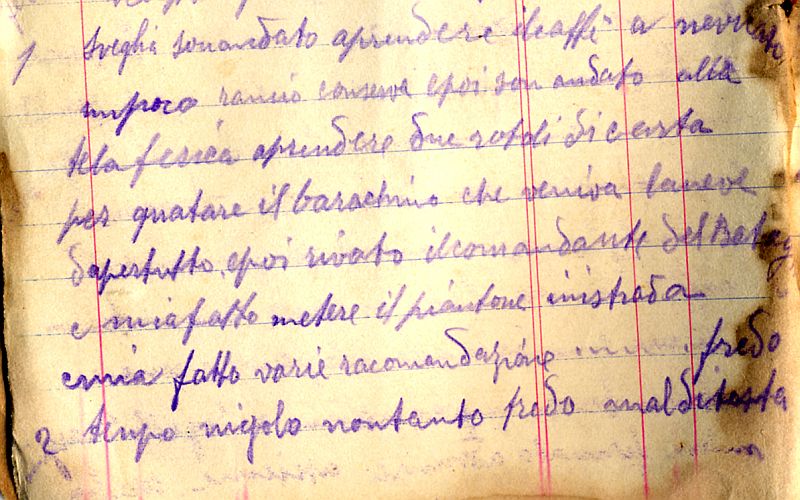 1 sveglia sonandato aprendere ilcaffè a nevicato
unpoco rancio conserva epoi son andato alla
telaferica aprendere due rotoli di carta
per quatare il barachino che veniva laneve
dapertutto, epoi rivato ilcomandante del Batag
e miafatto metere il piantone inistrada
emia fatto varie racomandazione fredo
2 tempo nigolo nontanto fredo malditesta